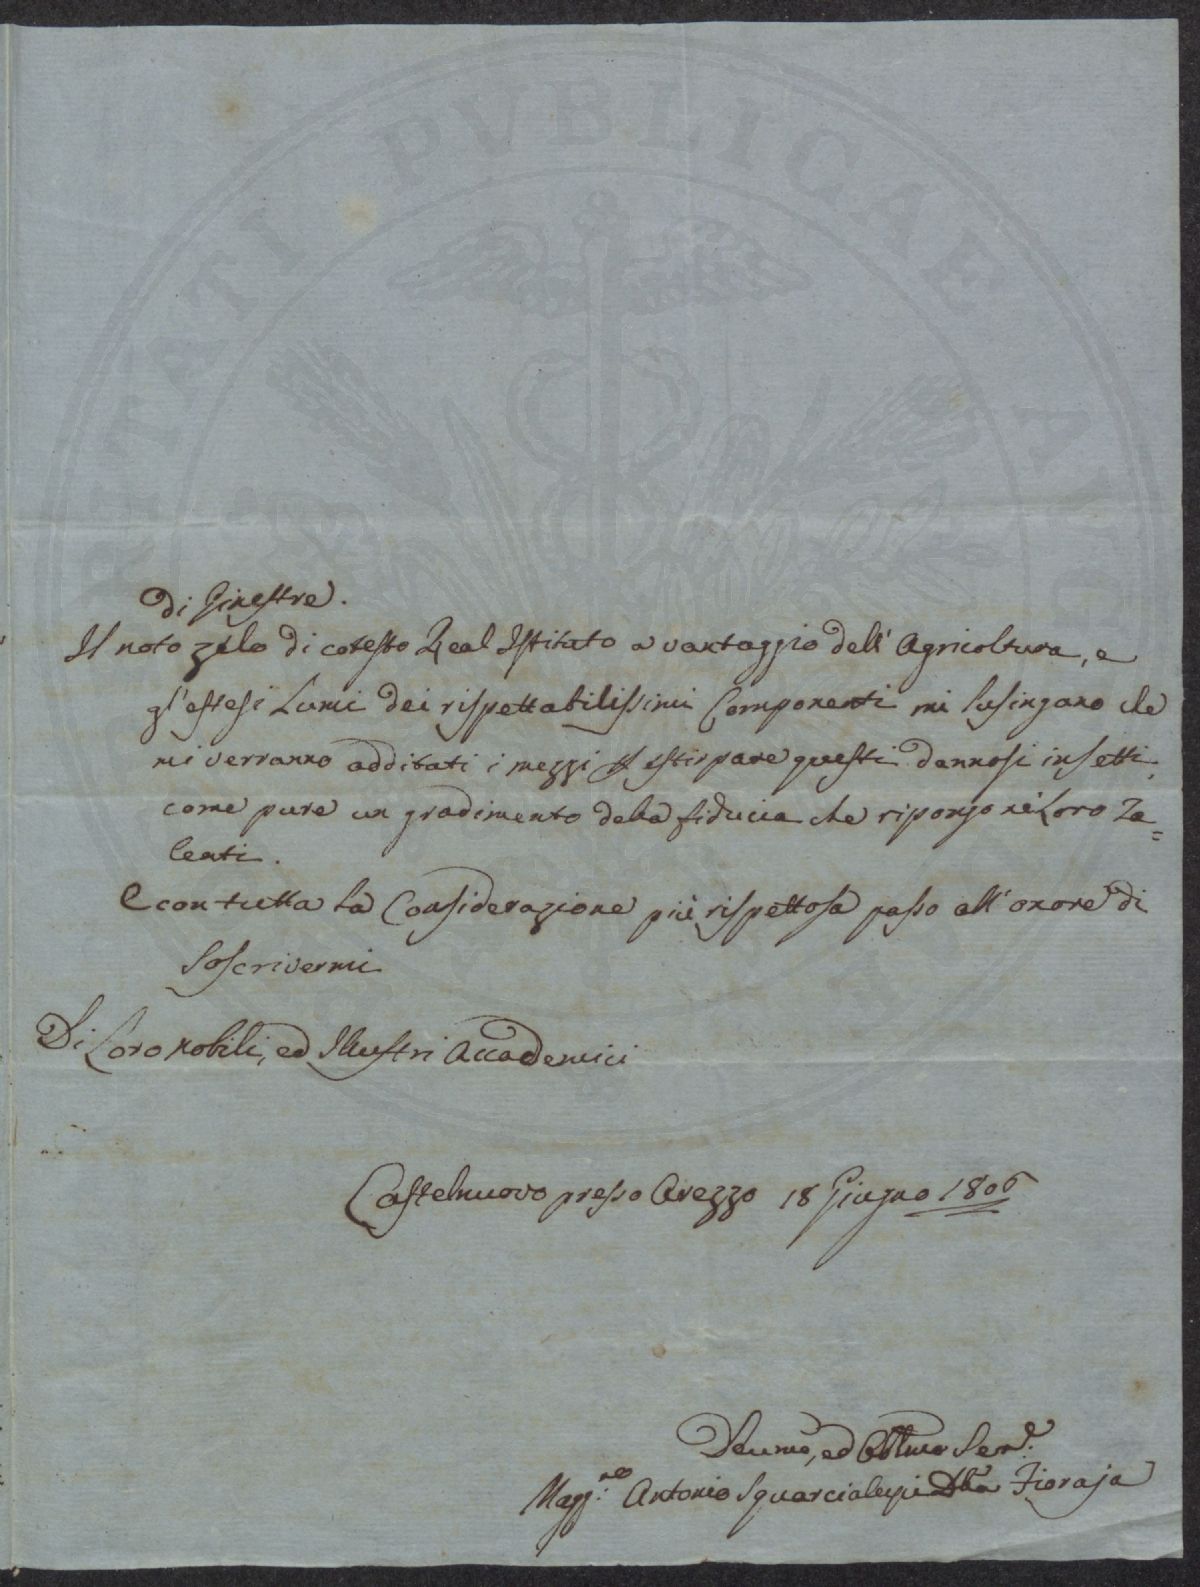 PVBLICAE
di Ginestre.
Il noto zelo di cotesto Real Istituto a vantaggio dell' Agricoltura, e
gl'estesi Lumi dei rispettabilissimi Componenti mi lusingano che
mi verranno additati i mezzi estirpare questi dannosi insetti,
come pure un gradimento della fiducia che ripongo ne' Loro Ta=
lenti.
E con tutta la Considerazione più rispettosa passo all'onore di
Soscrivermi
Di Loro nobili, ed Illustri Accademici
Castelnuovo presso Arezzo 18 Giugno 1806
Devmo, ed Obblmo Serv.
Magg.re Antonio Squarcialupi Della Fioraja